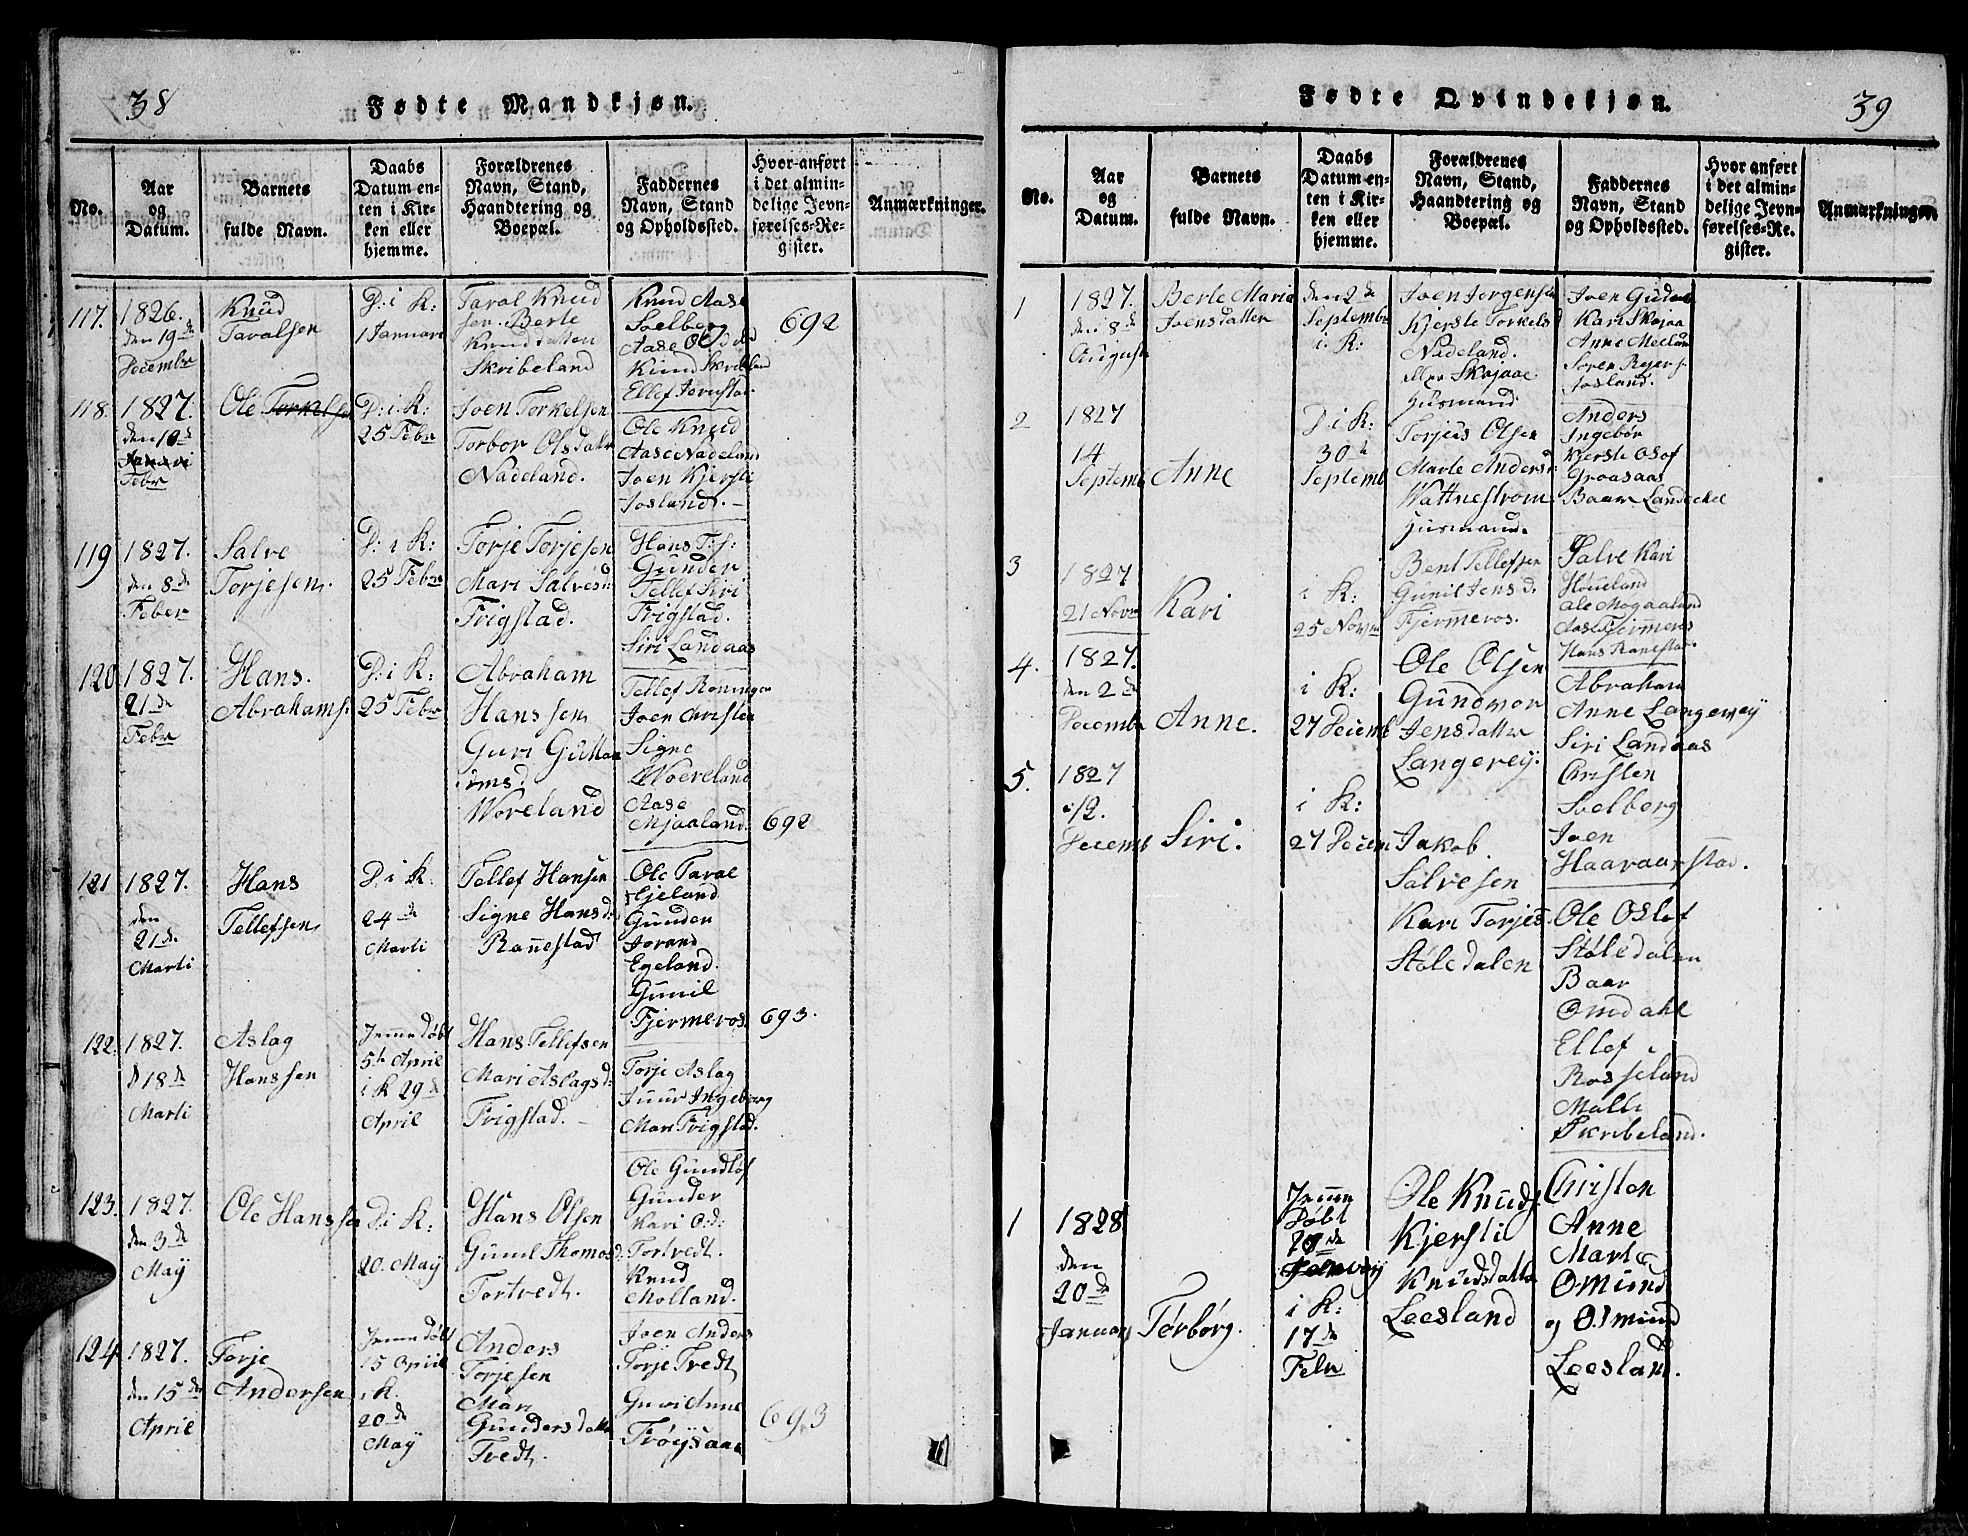 38
Fødte Mandkjøn.
No.
Aar
og
Datum.
Barnets
fulde Navn.
Daabs
Datum en-
ten i Kir-
ken eller
hjemme.
Forældrenes
Navn, Stand,
Haandtering og
Boepæl.
Faddernes
Navn, Stand
og Opholdssted.
Hvor anført
i det almin-
delige Jevn-
førelses-Re-
gister.
Anmærkninger.
117.
1826.
den 19de
Decembr
Knud
Tavalsen
D: i K:
1 Januari
Taral Knud
sen. Berte
Knudsdatter
Skribeland
Knud Aase
Soelberg
Aase
Knud Skribeland
Ellef
692
118.
1827.
den 10d
Febr
Ole Torkelsen
D: i K:
25 Febr
Joen Torkelsen
Torbor Olsdattr
Nadeland.
Ole Knud
Aase Nadeland
Joen Kjersti
Josland.
119
1827.
den 8de
Feber
Salve
Torjesen
D: i K:
25 Febr
Torje Torjesen
Mari Salvesd:
Frigstad.
Hans T:s:
Gunder
Tellef Siri
Frigstad.
Siri Landaas
120
1827.
21de
Febr
Hans.
Abrahams.
D: i K:
25 Febr
Abraham
Hanssen
Guri
Woreland
Tellef Roningen
Joen Christen
Signe
Woreland
Aase
Mjaaland.
692
121
1827.
den
21de
Marti
Hans
Tellefsen
D: i K.
24de
Marti
Tellef Hansen
Signe Hansd:
Rannestad
Ole Taral
Ejeland
Gunder
Jorand
Egeland.
Gunil
Fjermeros.
693.
122.
1827.
d 18de
Marti
Aslag
Hanssen
Jemmedøbt
5te April
i K 29de
April
Hans Tellefsen
Mari Aslagsd:
Frigstad.
Torje Aslag
Juur Ingeborg
Mari Frigstad.
123.
1827.
den 3de
May
Ole Hanssen
D: i K:
20. May
Hans Olsen
Gunil Thomasd:
Tortvedt.
Ole Gundlof
Gunder
Kari O:d:
Tortvedt.
Knud
Molland.
124.
1827.
den 15de
April
Torje
Andersen
Jemmedøbt
15 April
i K.
20de
May
Anders
Torjesen
Mari
Gundersdatter
Tvedt.
Joen Anders
Torje Tvedt
Guri Anne
Frøysaae
693
Fødte Qvindekjøn.
39
No.
Aar
og
Datum.
Barnets
fulde Navn.
Daabs
Datum en-
ten i Kir-
ken eller
hjemme.
Forældrenes
Navn, Stand,
Haandtering og
Boepæl.
Faddernes
Navn, Stand
og Opholdssted.
Hvor anført
i det almin-
delige Jevn-
førelses-Re-
gister.
Anmærkninger.
1
1827.
den 8de
August
Berte Maria
Joensdatter
den 2de
Septembr
i K:
Joen Jørgensen
Kjerste Torkelsd
Nadeland.
eller Skajaae
Husmand
Joen
Kari Skajaa
Anne
Søren
Josland.
2
1827
14
Septemb
Anne
D: i K:
30te
Septemb
Torjeus Olsen
Marte Andersd:
Wattnestrøm
Husmand.
Anders
Ingebor
Kjerste Osof
Groasaas
Baar Landeekel
3
1827
21 Novr
Kari
i K:
25 Novm
Bent Tellefsen
Gunil Jensd.
Fjermeros.
Salve Kari
Høueland
Ole Mogaaland
Aase Fjermeros
Hans Ranestad.
4.
1827.
den 2de
Decembr
Anne.
i K:
27 Decemb
Ole Olsen
Gundvor
Jensdatter
Langevey.
Abraham
Anne Langevey
Siri Landaas
5.
1827
12.
Decemb
Siri.
i K:
27 Decem
Jakob.
Salvesen
Kari Torjesd.
Støledalen
Christen
Soelberg
Joen
Haavaarstad.
Ole Oslef
Støledalen
Baar
Omdahl
Ellef
Rosseland
Malli
Skribeland.
1
1828
den
20de
January
Tørbørg.
Jemme
Døbt
20de
i K:
17de
Febr
Ole Knuds
Kjersti
Knudsdatter
Leesland
Christen
Anne
Marte
Omund
og Osmund
Leesland.